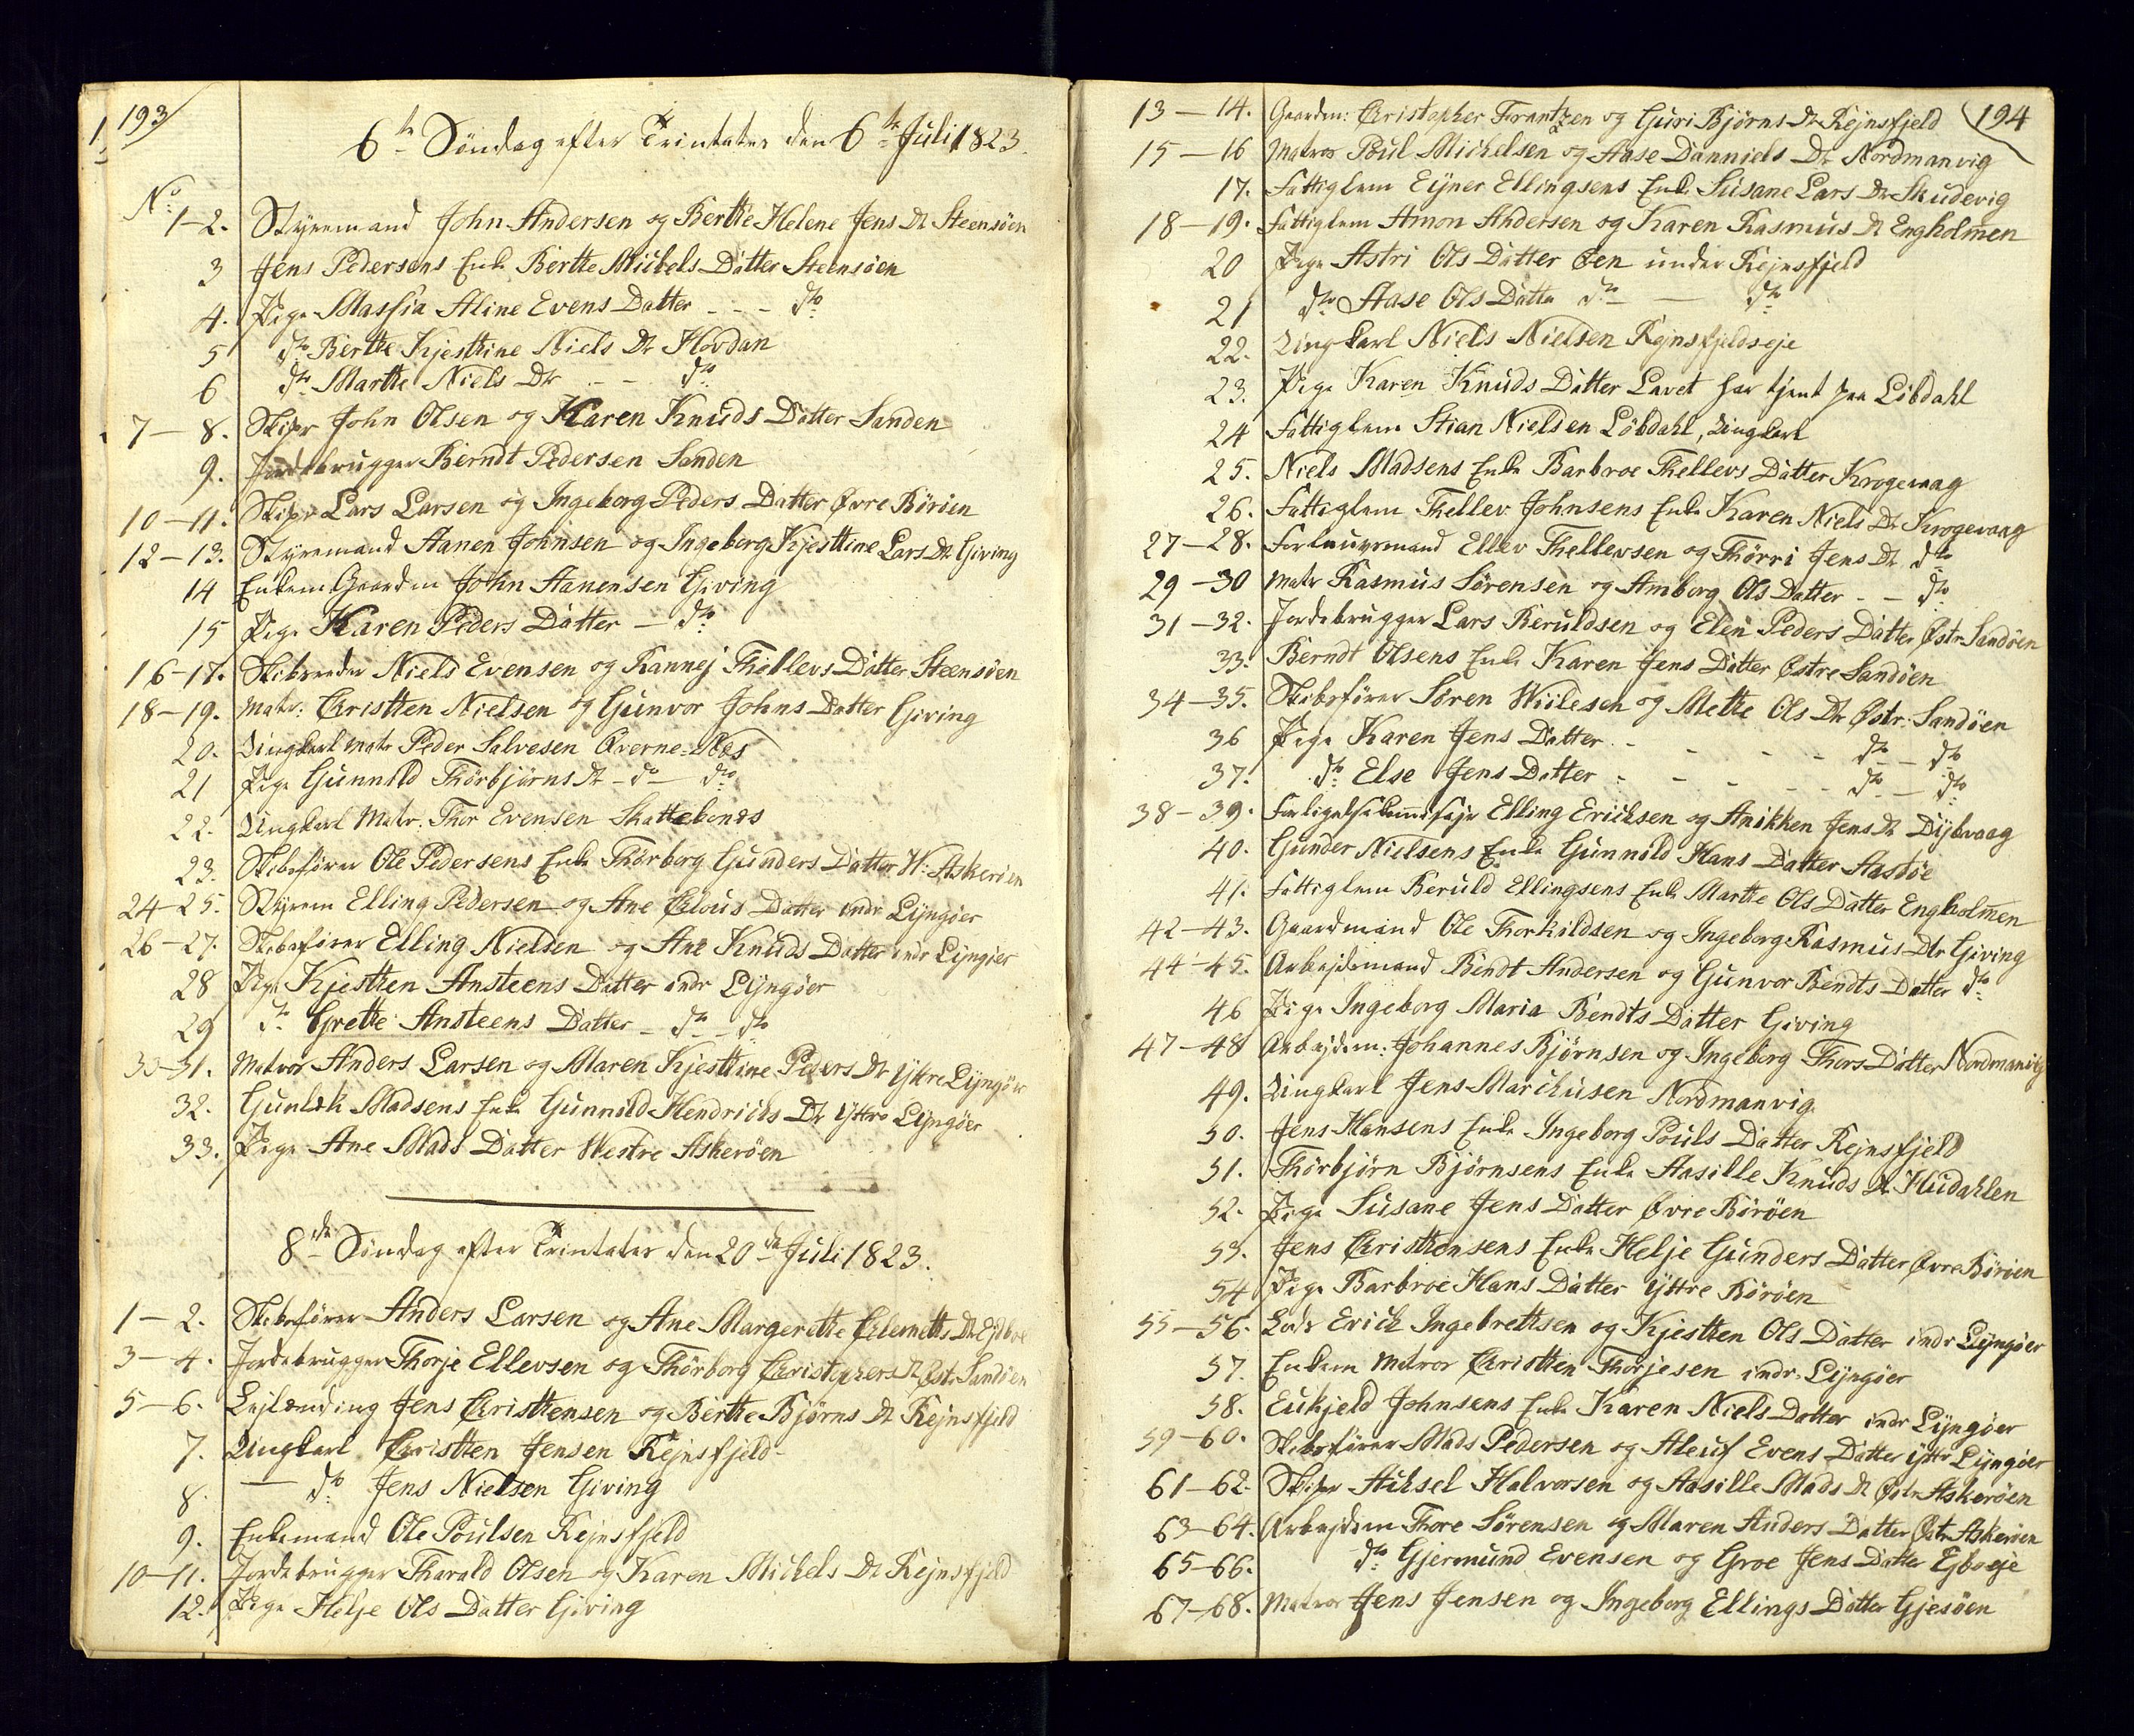 193
6te Söndag efter Trinitatis den 6te Juli 1823.
No:
1-2. Styremand John Andersen og Berthe Helene Jens Dr Steensöen
3 Jens Pedersens Enke Berthe Michels Datter Steensöen
4. Pige Massia Aline Evens Datter - - - dto
5 dto Berthe Kjesttine Niels Dr Hovdan
6 dto Marthe Niels Dtr - - dto
7-8. Skipr John Olsen og Karen Knuds Datter Sanden
9. Jordebrugger Berndt Pedersen Sanden
10-11. Skipr Lars Larsen og Ingeborg Peders Datter Øvre Böröen
12-13. Styremand Aanen Johnsen og Ingeborg Kjesttine Lars Dr Giving
14 Enkem Gaardm John Aanensen Giving
15 Pige Karen Peders Datter - dto
16-17. Skibsreeder Niels Evensen og Rannej Thellevs Datter Steensöen
18-19. Matr: Christten Nielsen og Gunvor Johns Datter Giving
20. Ungkarl Matr Peder Salvesen Qverne-Næs
21 Pige Gunnild Thorbjørns Dr - do - dto
22. Ungkarl Matr. Thor Evensen Skattebonds
23. Skibsförer Ole Pedersens Enke Thorborg Gunders Datter W: Askeröen
24-25. Styrem Elling Pedersen og Ane Clous Datter indr Lyngöer
26-27. Skibsförer Elling Nielsen og Ane Knuds Datter indr Lyngöer
28 Pige Kjestten Ansteens Datter indr Lyngöer
29 dto Grethe Ansteens Datter - dto - dto
30-31. Matros Anders Larsen og Maren Kjesttine Peders Dr Yttre Lyngöer
32. Gunlek Madsens Enke Gunnild Hendrichs Dr Yttre Lyngöer
33. Pige Ane Mads Datter Westre Askeröen
8de Söndag efter Trinitatis den 20de Juli 1823.
1-2. Skibsförer Anders Larsen og Ane Margerethe Clemetts Dr
3-4. Jordebrugger Thorje Ellevsen og Thorborg Christophers Dr Østr Sandöen
5-6. Lejlænding Jens Christtensen og Berthe Bjørns Dr Rejnsfjeld
7. Ungkarl Christten Jensen Rejnsfjeld
8. - dto Jens Nielsen Giving
9. Enkemand Ole Poulsen Rejnsfjeld
10-11. Jordebrugger Tharald Olsen og Karen Michels Dr Rejnsfjeld
12. Pige Helje Ols Datter Giving
194
13-14. Gaardm: Christopher Frantzen og Guri Bjørns Dr Rejnsfjeld
15-16 Matros Poul Michelsen og Aase Danniels Dr Nordmanvig
17. Fattiglem Ejner Ellingsens Enke Susane Lars Dr Skudevig
18-19. Fattiglem Amon Andersen og Karen Rasmus Dr Engholmen
20 Pige Astri Ols Datter Øen under Rejnsfjeld
21 dto Aase Ols Datter dto - dto
22. Ungkarl Niels Nielsen Rejnsfjeldseje
23. Pige Karen Knuds Datter Lavet har tjent paa Löbdahl
24 Fattiglem Stian Nielsen Löbdahl, Ungkarl
25. Niels Madsens Enke Barbroe Thellevs Datter Krogevaag
26. Fattiglem Thellev Johnsens Enke Karen Niels Dr Krogevaag
27-28. Ellev Thellevsen og Thorri Jens Dr dto
29-30 Matr Rasmus Sörensen og Amborg Ols Datter - - dto
31-32. Jordebrugger Lars Beruldsen og Elen Peders Datter Østr. Sandöen
33. Berndt Olsens Enke Karen Jens Datter Østre Sandöen
34-35. Skibsförer Sören Wiilesen og Mette Ols Dr Østr: Sandöen
36 Pige Karen Jens Datter - - - - dto - dto
37. dto Else Jens Datter - - - - dto - dto
38-39. Elling Ericksen og Anikken Jens Dr Dybvaag
40. Gunder Nielsens Enke Gunnild Hans Datter Aastöe
41. Fattiglem Beruld Ellingsens Enke Marthe Ols Datter Engholmen
42-43. Gaardmand Ole Thorkildsen og Ingeborg Rasmus Dtr Giving
44-45. Arbejdsmand Bendt Andersen og Gunvor Bendts Datter dto
46 Pige Ingeborg Maria Bendts Datter Giving
47-48 Arbejdsm: Johannes Bjørnsen og Ingeborg Thors Datter Nordmanvig
49. Ungkarl Jens Marchusen Nordmanvig
50. Jens Hansens Enke Ingeborg Pouls Datter Rejnsfjeld
51. Thorbjörn Bjørnsens Enke Aasille Knuds Dr Hudahlen
52. Pige Susane Jens Datter Øvre Böröen
53. Jens Christtensens Enke Helje Gunders Datter Øvre Böröen
54 Pige Barbroe Hans Datter Yttre Böröen
55-56. Lods Erich Ingebrettsen og Kjestten Ols Datter indr Lyngöer
57. Enkem Matros Christten Thorjesen indr. Lyngöer
58. Eukjeld Johnsens Enke Karen Niels Datter indr Lyngöer
59-60. Skibsförer Mads Pedersen og Aleuf Evens Datter Yttr Lyngöer
61-62. Skipr Achsel Halvorsen og Aasille Mads Dr Østr Askeröen
63-64. Arbejdsm Thore Sörensen og Maren Anders Datter Østr Askeröen
65-66. dto Gjermund Evensen og Groe Jens Datter Ejboeje
67-68. Matros Jens Jensen og Ingeborg Ellings Datter Gjesöen